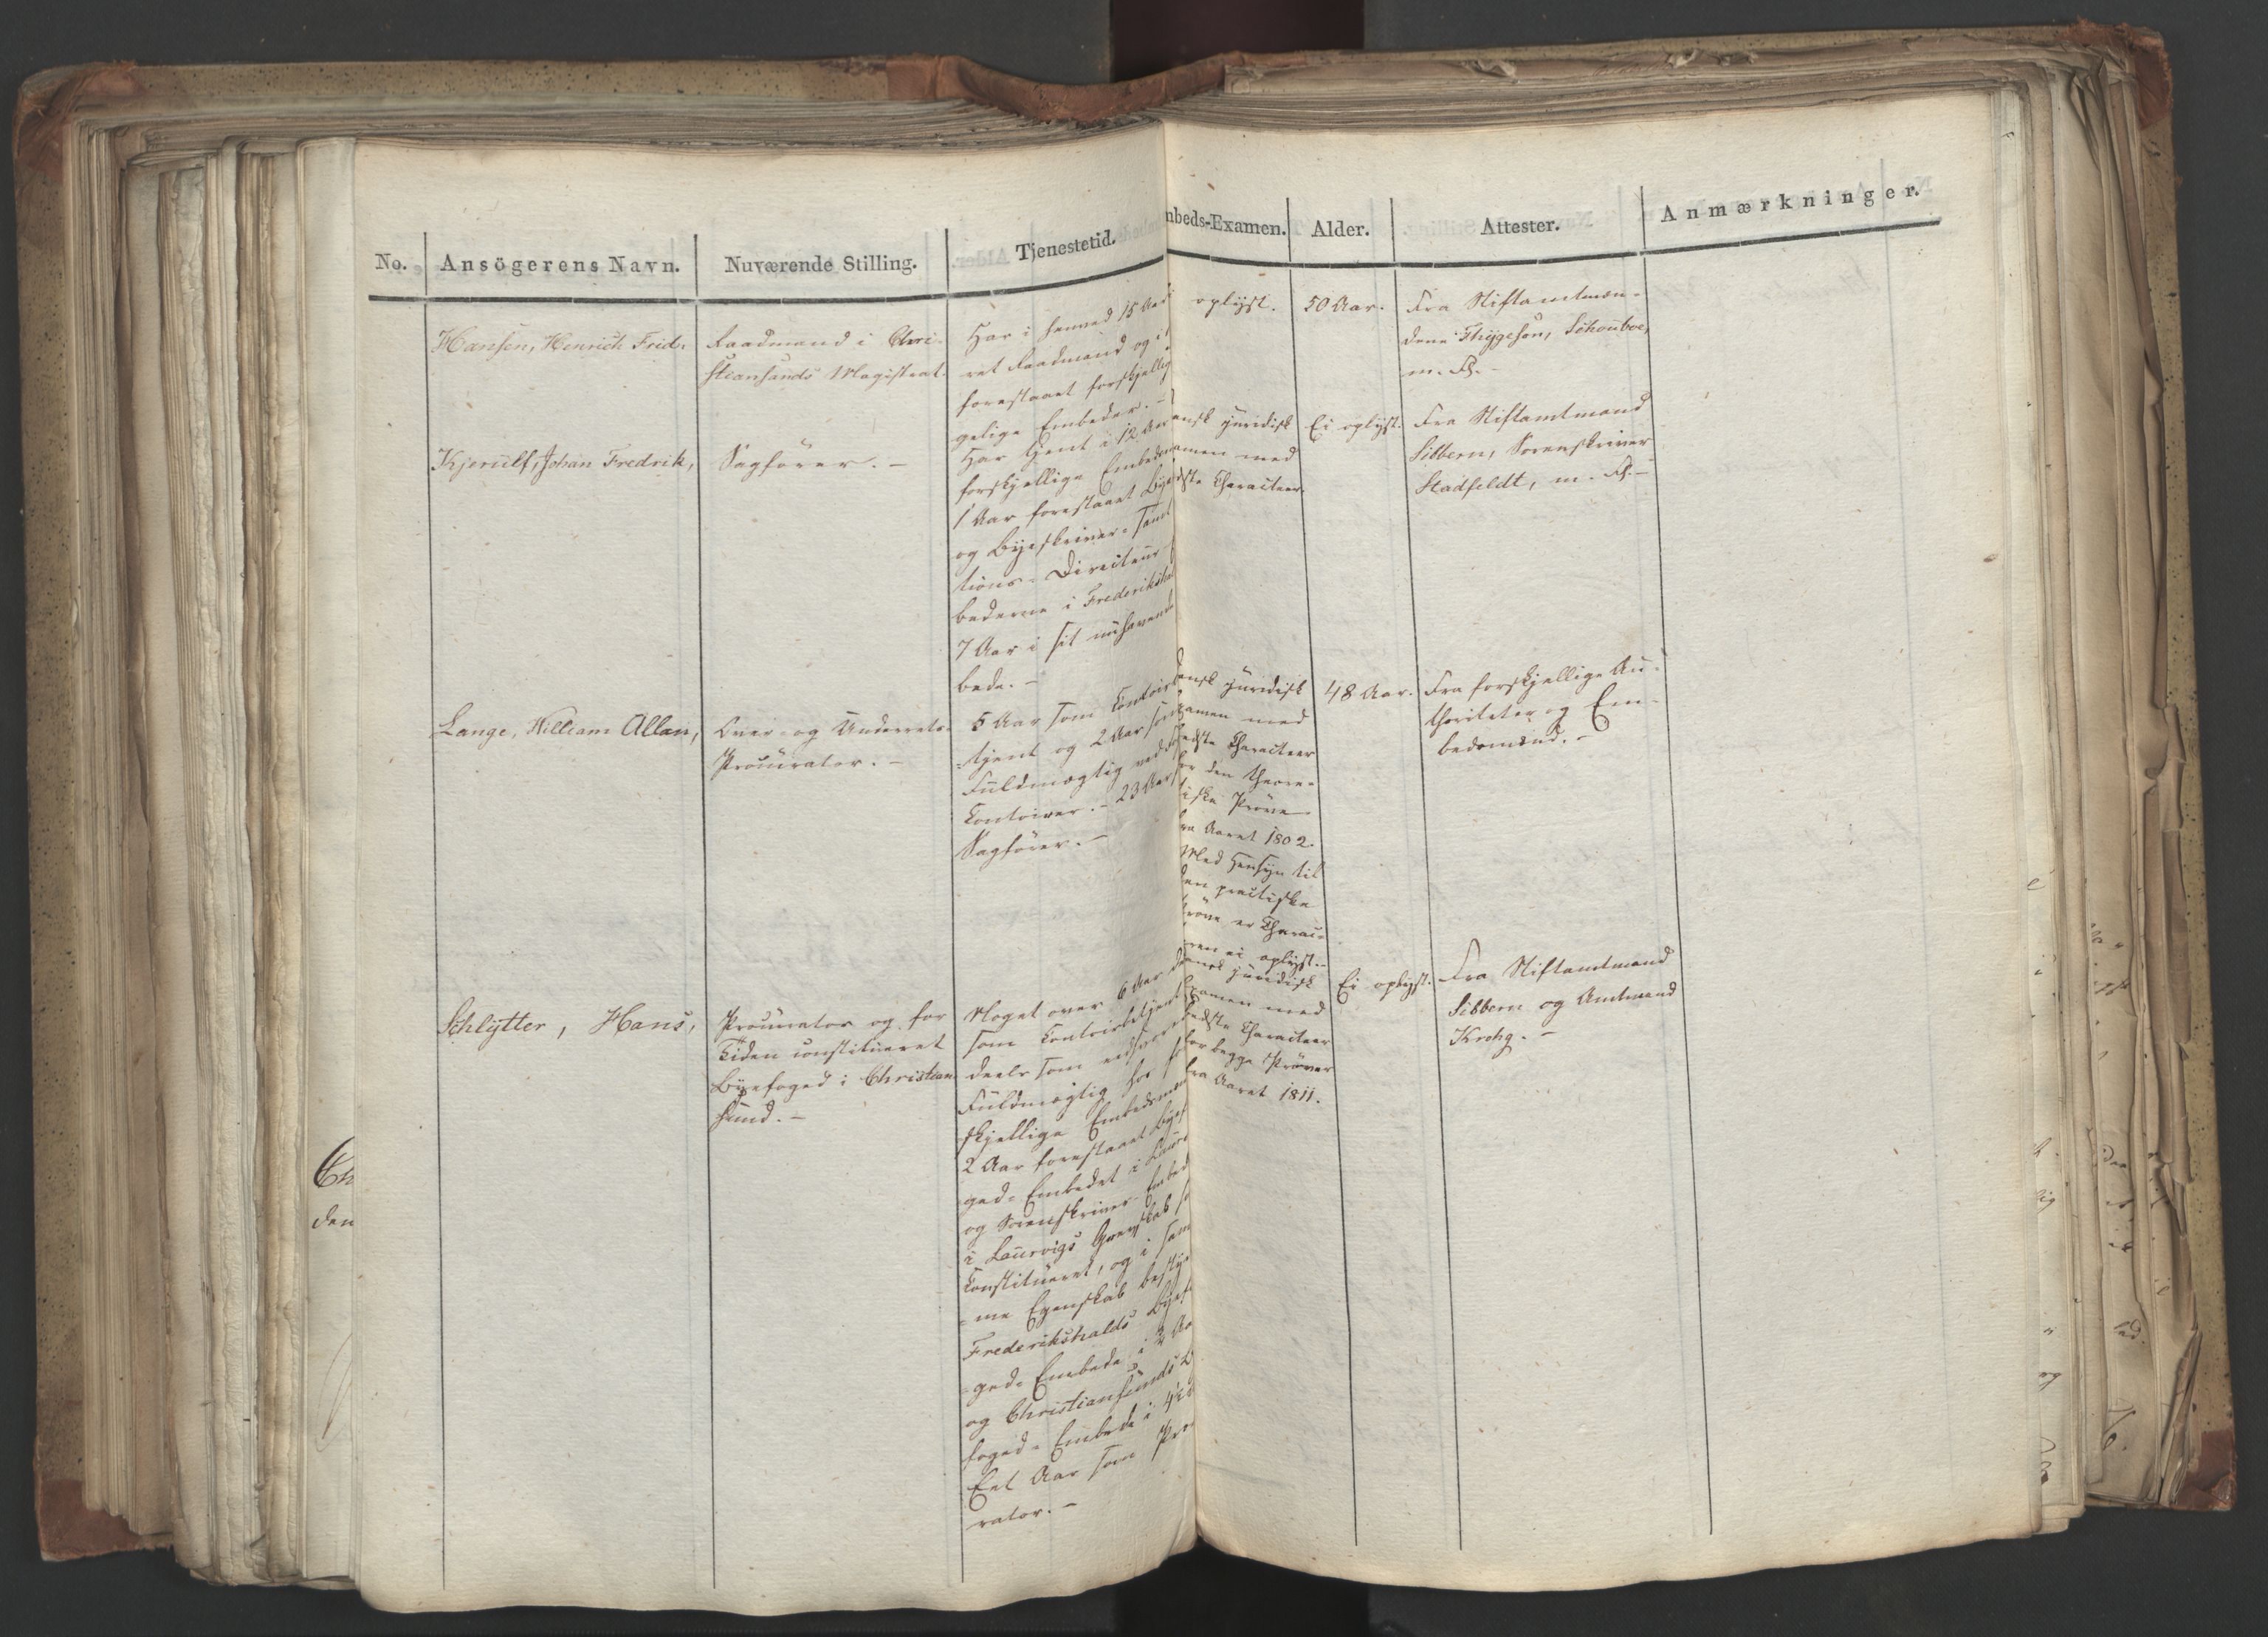 No.
Ansögerens Navn.
Nuværende Stilling.
Tjenestetid.
mbeds-Examen.
Alder.
Attester.
Anmærkninger.
Hansen, Henrich Fred:
Raadmand i Chri-
stiansands Magistrat.
Har i henved 15 Aar
ret Raadmand og i
forestaaet forskjellig
gelige Embeder. -
oplyst.
50 Aar.
Fra Stiftamtmæn-
dene Thygeson, Schouboe,
m. Fl. -
Kjerulf, Johan Fredrik,
Sagfører. -
Har tjent i 12 Aar
forskjellige Embedsm
1 Aar forestaaet Bye
og Byeskriver- samt
tions- Directeur
bederne i Frederiksha
7 Aar i sit nuhavende
bede. -
ansk juridisk
amen med
dste Characteer.
Ei oplyst.
Fra Stiftamtmand
Sibbern, Sorenskriver
Stadfeldt, m. Fl. -
Lange, William Allan,
Over- og Underrets-
Procurator. -
5 Aar som Contoirbe
tjent og 2 Aar som
Fuldmægtig ved
Contoirer. - 23 Aar
Sagfører. -
dansk juridisk
xamen med
bedste Characteer
for den theore-
tiske Prøve
fra Aaret 1802.
Med Hensyn til
den practiske
Prøve er Charac-
ren ei oplyst. -
48 Aar.
Fra forskjellige Au-
thoriteter og Em-
bedsmænd. -
Schlytter, Hans,
Procurator og for
Tiden constitueret
Byefoged i Christian
sund. -
Noget over 6 Aar d
som Contoirbetjent
deels som edsvoren
Fuldmægtig hos for
skjellige Embedsmæn
2 Aar forestaaet Byef
ged- Embedet i Laur
og Sorenskriver- Embed
i Laurvigs Grevskab so
Constitueret, og i sam
me Egenskab besty
Frederikshalds Byefo
ged- Embede i 2 Aa
og Christiansunds B
foged- Embede i 4½
Eet Aar som Proc
rator. -
dansk juridisk
Examen med
bedste Characteer
for begge Prøver
fra Aaret 1811.
Ei oplyst.
Fra Stiftamtmand
Sibbern og Amtmand
Krohg. -
Ch
den